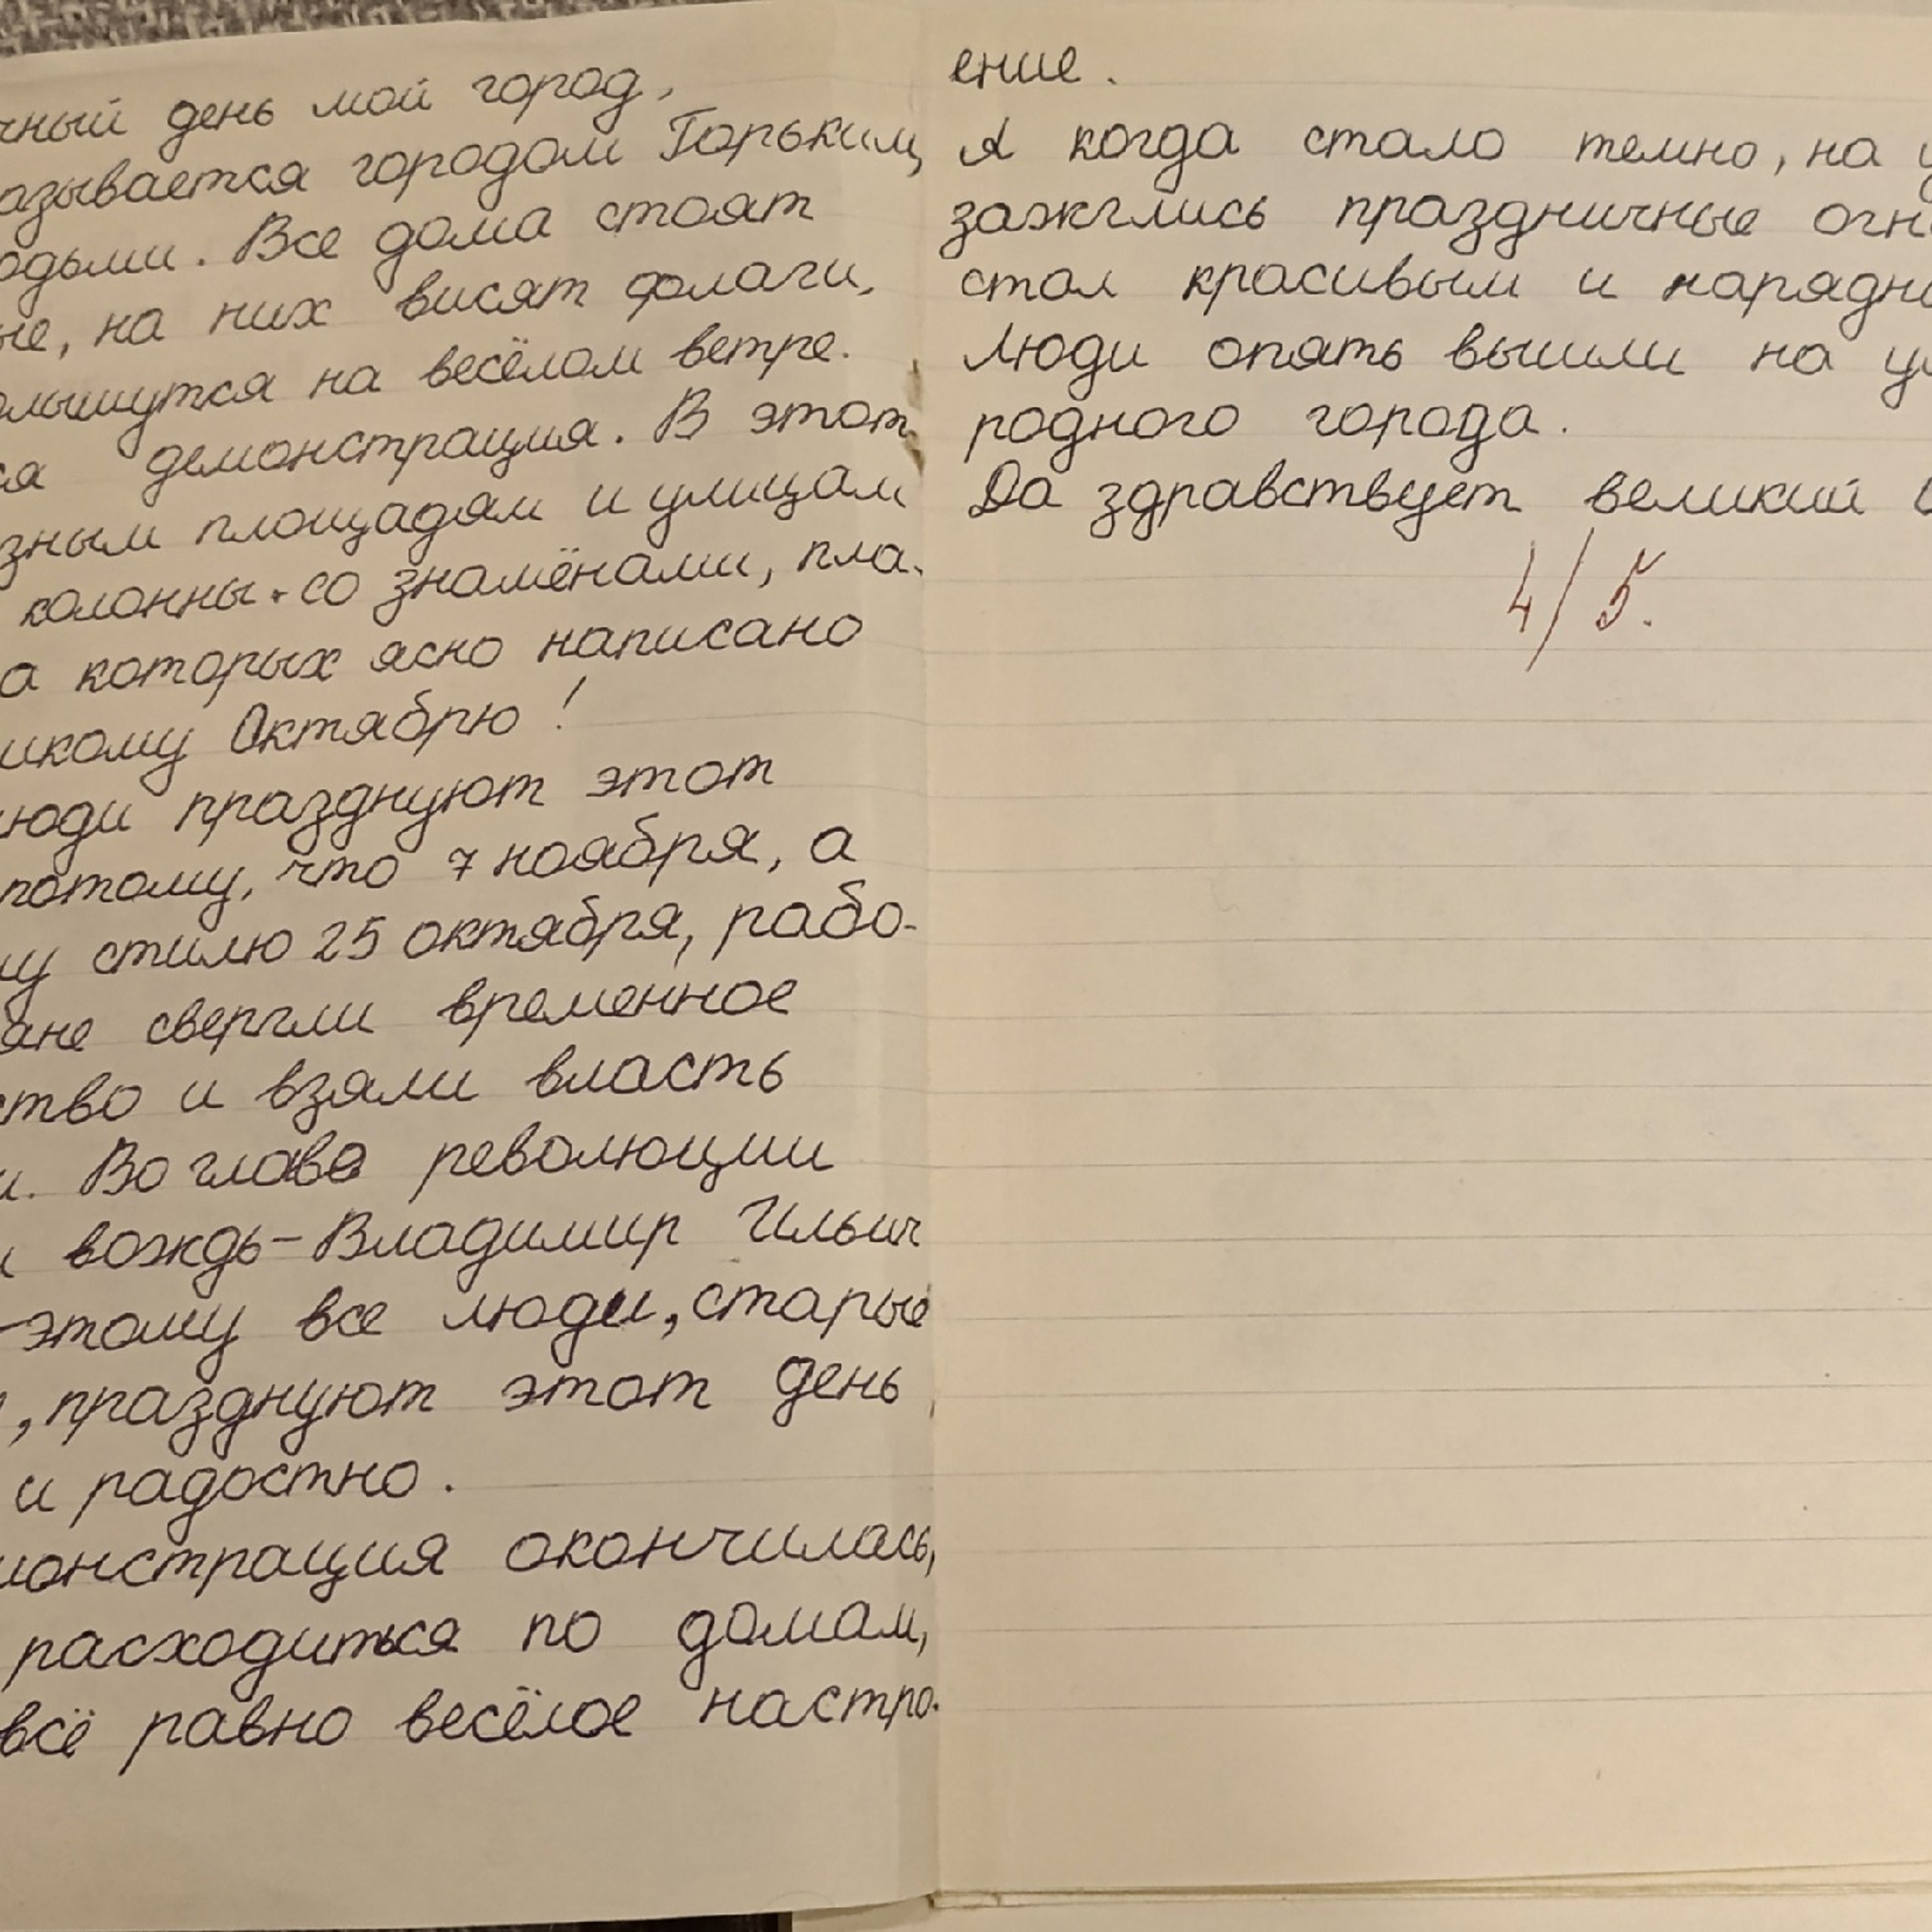 чный день мой город,
азывается городом Горьким,
одьми. Все дома стоят
ые, на них висят флаги,
олышутся на весёлом ветре.
ся демонстрация. В этот
зным площадям и улицам
колонны со знамёнами, пла-
а которых ясно написано
икому Октябрю!
юди празднуют этот
потому, что 7 ноября, а
му стилю 25 октября, рабо-
яне свергли временное
ство и взяли власть
и. Во главе революции
вождь – Владимир Ильич
-этому все люди, старые
, празднуют этот день
и радостно.
монстрация окончилась,
расходиться по домам,
всё равно весёлое настро-
ение.
А когда стало темно, на у
зажглись праздничные огн
стал красивым и нарядн
Люди опять вышли на ул
родного города.
Да здравствует великий О
4/5.